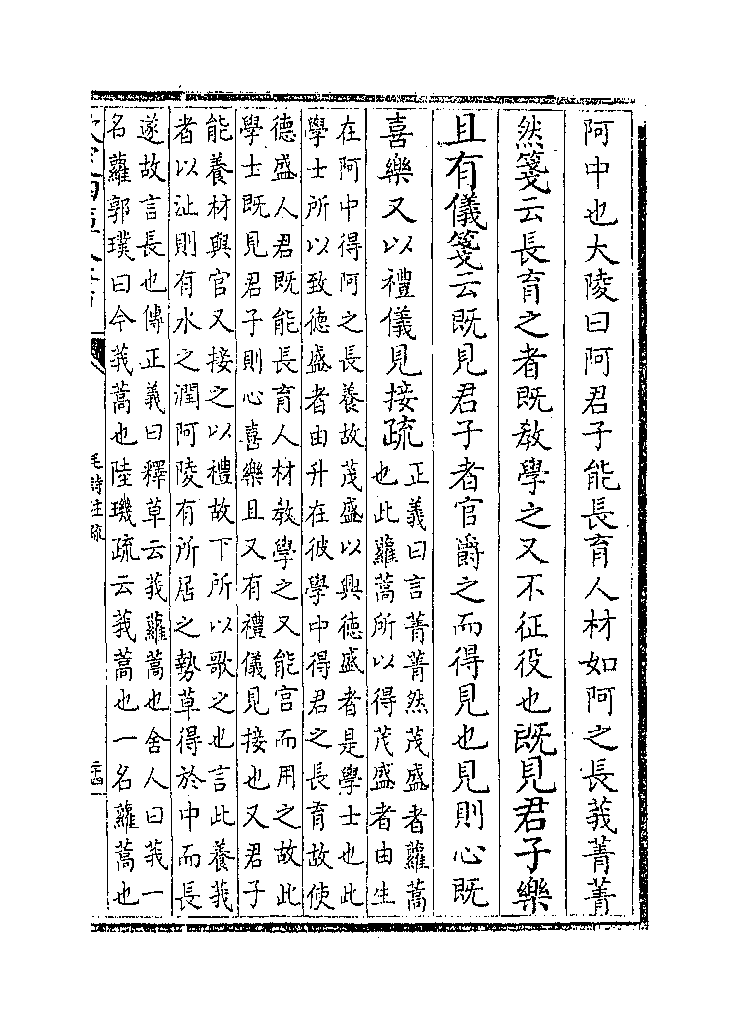 阿中也大陵曰阿君子能長育人材如阿之長莪菁菁
然箋云長育之者既教學之又不征役也既見君子樂
且有儀箋云既見君子者官爵之而得見也見則心既
喜樂又以禮儀見接疏
正義曰言菁菁然茂盛者蘿蒿
也此蘿蒿所以得茂盛者由生
在阿中得阿之長養故茂盛以興德盛者是學士也此
學士所以致德盛者由升在彼學中得君之長育故使
德盛人君既能長育人材教學之又能官而用之故此
學士既見君子則心喜樂且又有禮儀見接也又君子
能養材與官又接之以禮故下所以歌之也言此養莪
者以沚則有水之潤阿陵有所居之勢草得於中而長
遂故言長也傳正義曰釋草云莪蘿蒿也舍人曰莪一
名蘿郭璞曰今莪蒿也陸璣疏云莪蒿也一名蘿蒿也
毛詩注疏
二十四